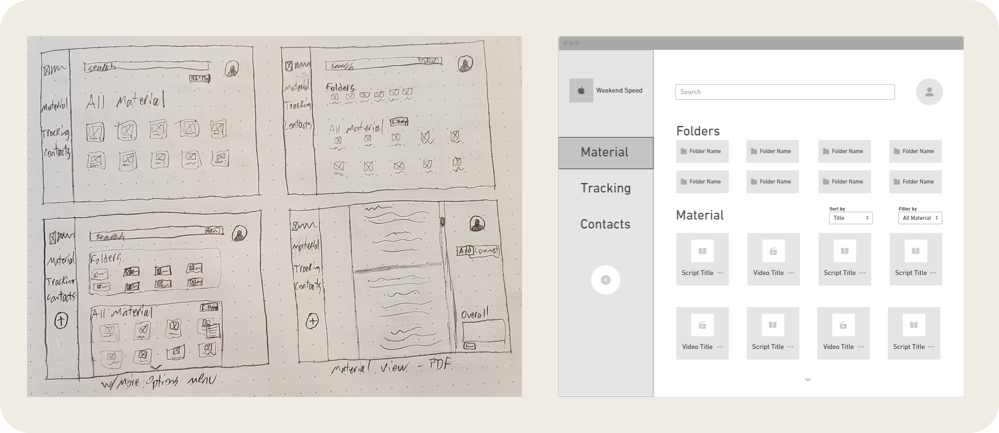 search
All Material
Material
Tracking
Contacts
search
Folders
Material
Tracking
Contacts
All Material
search
Folders
Material
Tracking
Contacts
All Material
w/ More Options menu
Material
Tracking
Contacts
Add Comment
Overall
Material view - PDF
Weekend Speed
Search
Folders
Material
Folder Name
Folder Name
Folder Name
Folder Name
Tracking
Folder Name
Folder Name
Folder Name
Folder Name
Contacts
Material
Sort by
Title
Filter by
All Material
Script Title
Video Title
Script Title
Script Title
Video Title
Script Title
Video Title
Script Title